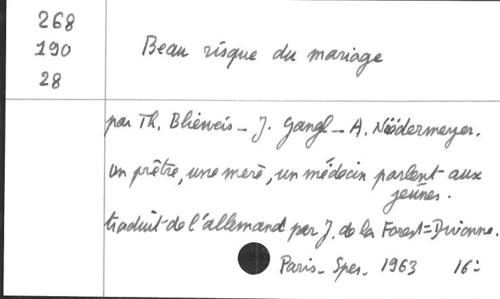 268
190
28
Beau risque du mariage
par Th. Blieweis _ J. Gangl _ A. Niedermeyer.
un prêtre, une mère, un médecin parlent aux
jeunes.
traduit de l'allemand par J. de la Forest=Divonne.
Paris _ Spes _ 1963 16=